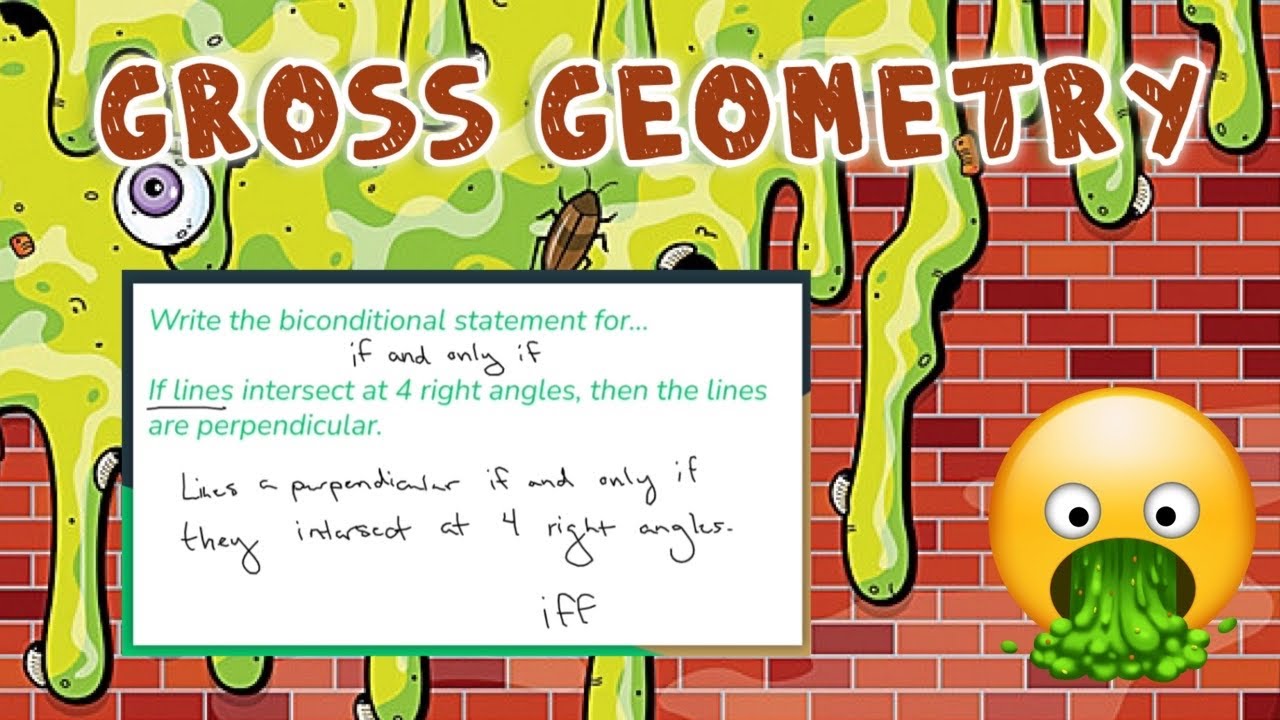 GROSS GEOMETRY
Write the biconditional statement for...
if and only if
If lines intersect at 4 right angles, then the lines
are perpendicular.
Lines a purpendicular if and only if
they intersect at 4 right angles.
iff